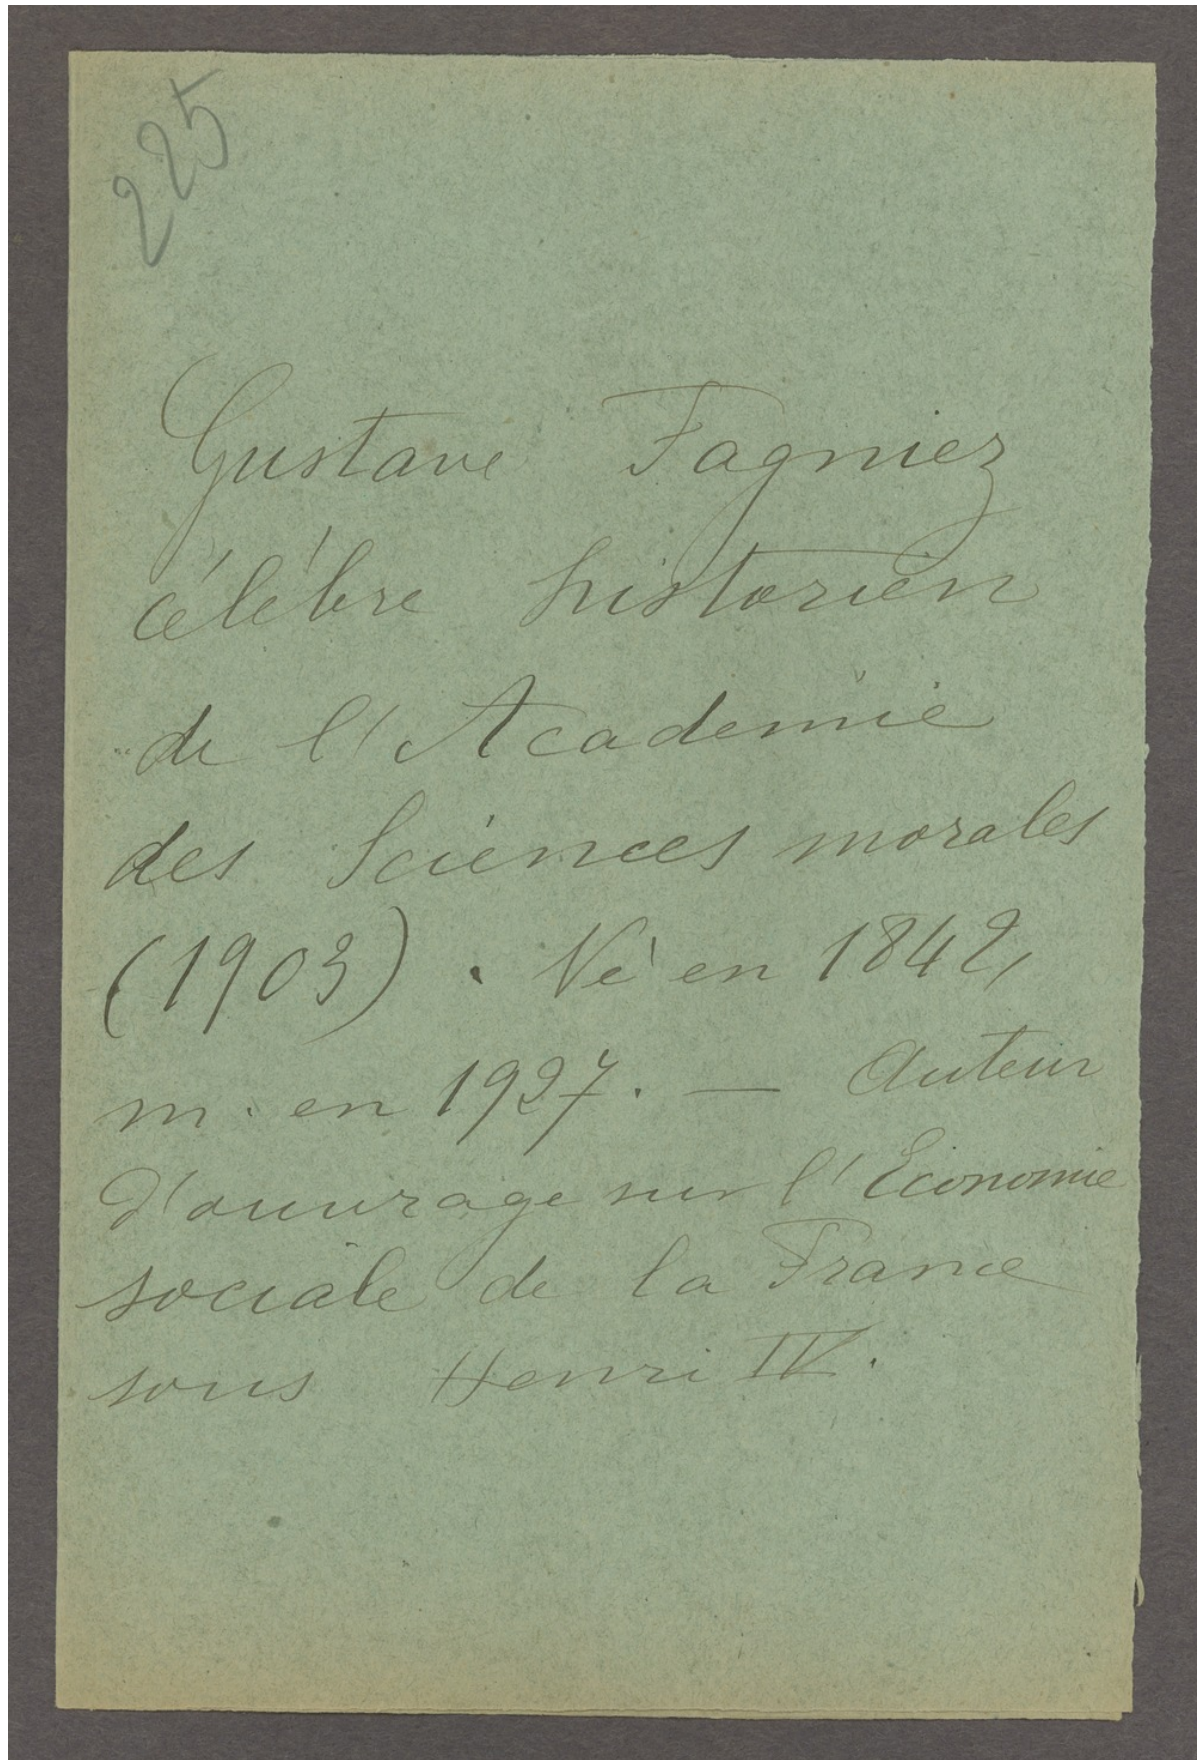 225
Gustave Fagniez
célèbre historien
de l'Academie
des Sciences morales
(1903). Né en 1842,
m. en 1927. — Auteur
d'ouvrage sur l'Economie
sociale de la France
sous Henri IV.